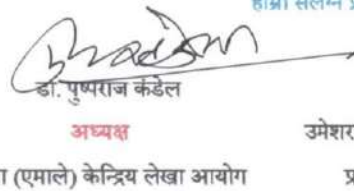 हाम्रो संलग्न
डा. पुष्पराज कंडेल
अध्यक्ष उमेशर
(एमाले) केन्द्रिय लेखा आयोग